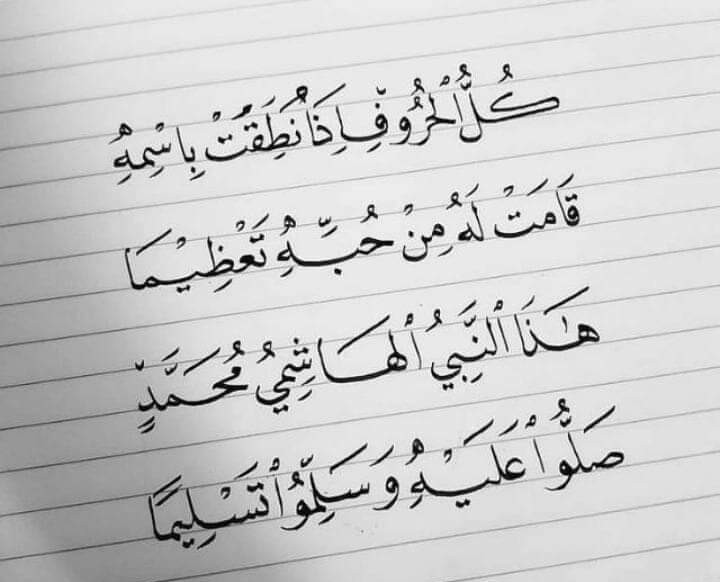 كُلُّ الْحُرُوفِ إِذَا نُطِقَتْ بِاسْمِهِ
قَامَتْ لَهُ مِنْ حُبِّهِ تَعْظِيْمَا
هٰذَا النَّبِيُّ الْهَاشِمِيُّ مُحَمَّدٍ
صَلُّوا عَلَيْهِ وَسَلِّمُوا تَسْلِيمًا